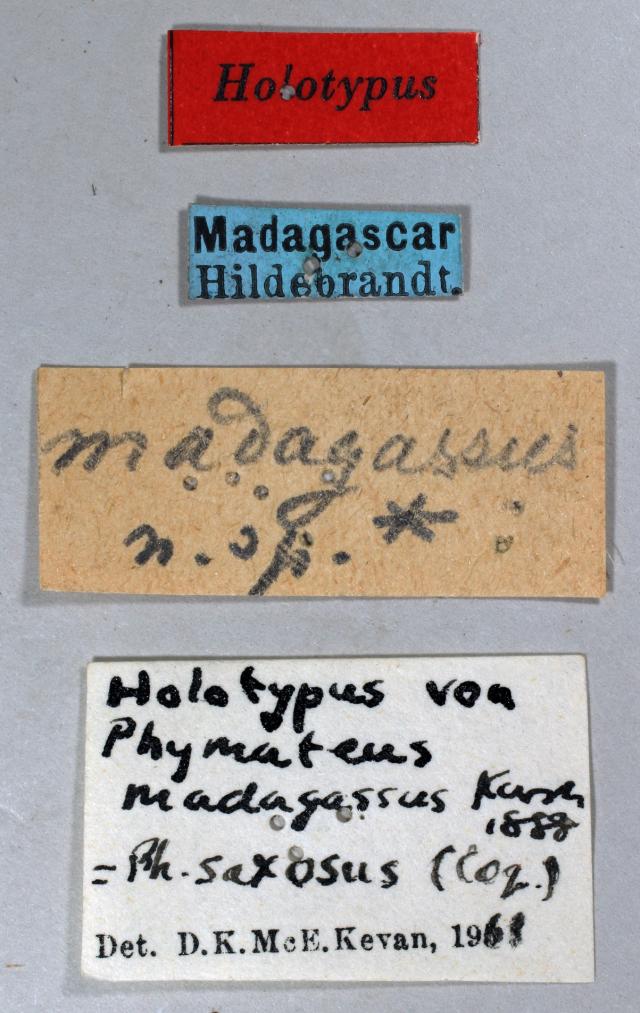 Holotypus
Madagascar
Hildebrandt.
madagassus
n. sp. *
Holotypus von
Phymateus
madagassus Karsch
1888
= Ph. saxosus (Coq.)
Det. D.K.McE.Kevan, 1961